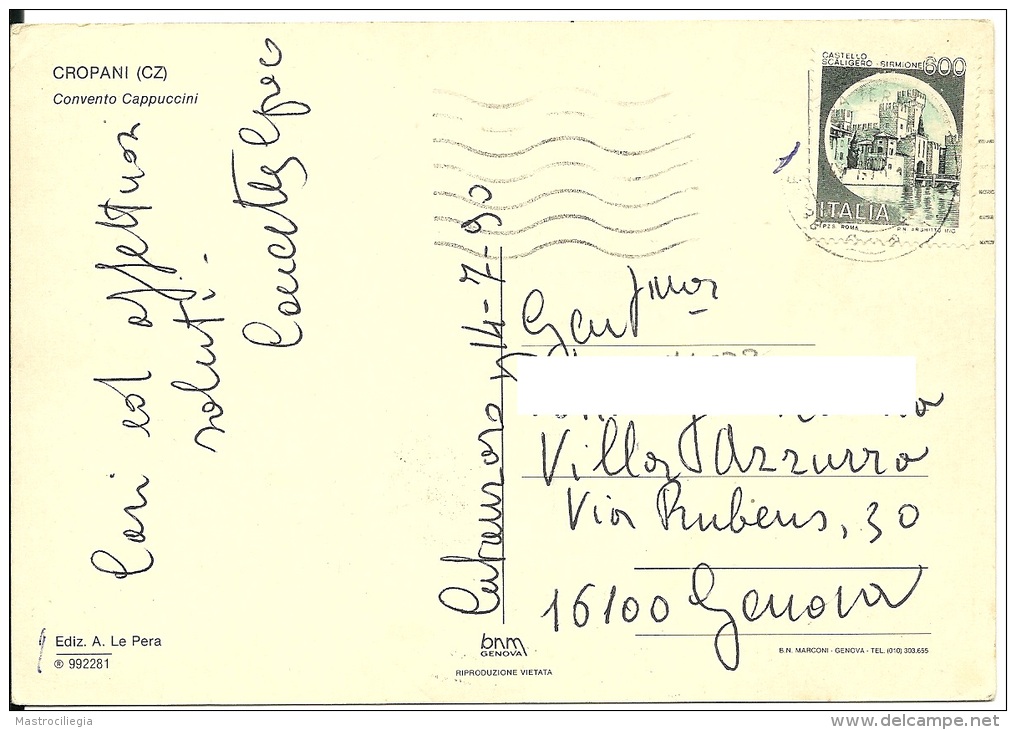 CROPANI (CZ)
Convento Cappuccini
Cari ed affettuosi
saluti -
Catanzaro, 14-7-90
CASTELLO
SCALIGERO - SIRMIONE
600
ITALIA
I.P.Z.S. ROMA
Gent.
Villa Azzurra
Via Rubens, 30
16100 Genova
Ediz. A. Le Pera
® 992281
bnm
GENOVA
RIPRODUZIONE VIETATA
B.N. MARCONI - GENOVA - TEL. (010) 303.655
Mastrociliegia
www.delcampe.net